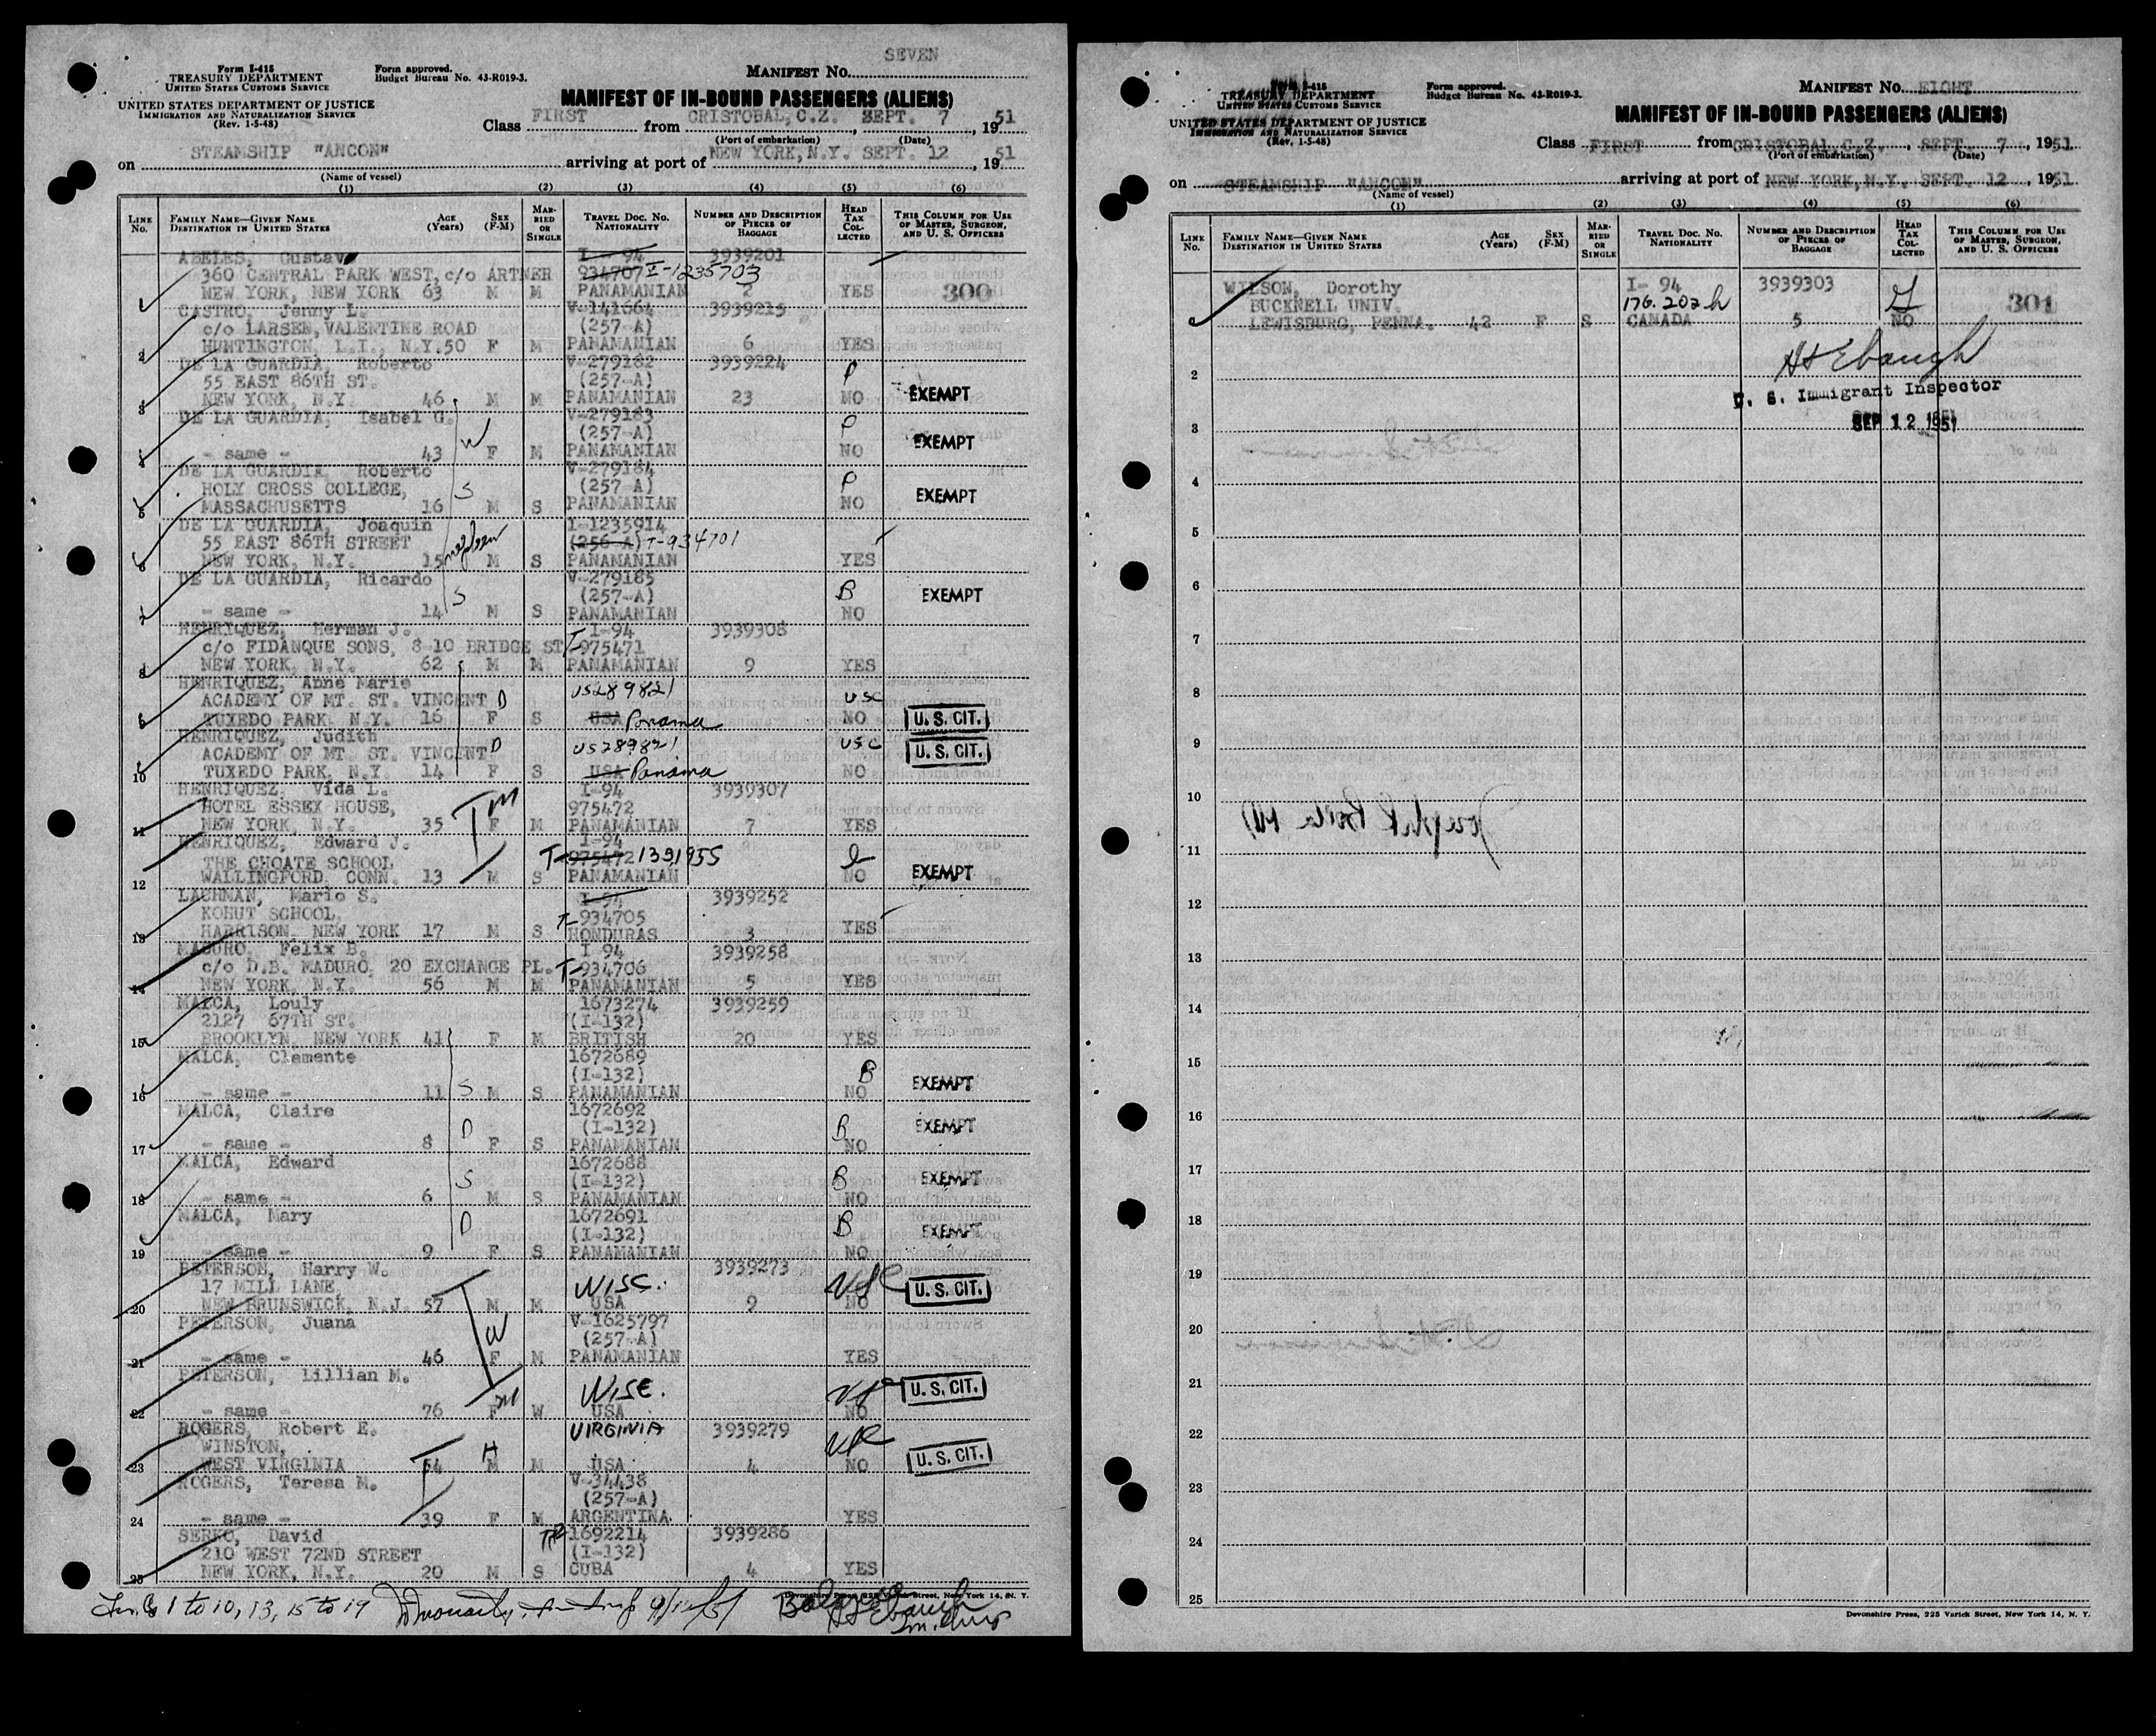 SEVEN
Form I-415
TREASURY DEPARTMENT
UNITED STATES CUSTOMS SERVICE
UNITED STATES DEPARTMENT OF JUSTICE
IMMIGRATION AND NATURALIZATION SERVICE
(Rev. 1-5-48)
Form approved.
Budget Bureau No. 43-R019-3.
MANIFEST No.
MANIFEST OF IN-BOUND PASSENGERS (ALIENS)
Class FIRST from CRISTOBAL, C.Z. SEPT. 7, 1951
(Port of embarkation) (Date)
on STEAMSHIP "ANCON" arriving at port of NEW YORK, N.Y. SEPT. 12, 1951
(Name of vessel)
(1) (2) (3) (4) (5) (6)
LINE No. FAMILY NAME—GIVEN NAME DESTINATION IN UNITED STATES AGE (Years) SEX (F-M) MARRIED OR SINGLE TRAVEL DOC. NO. NATIONALITY NUMBER AND DESCRIPTION OF PIECES OF BAGGAGE HEAD TAX COLLECTED THIS COLUMN FOR USE OF MASTER, SURGEON, AND U. S. OFFICERS
ABELES, Gustav I-94 3939201
360 CENTRAL PARK WEST, c/o ARTNER 934707 I-1235703
1 NEW YORK, NEW YORK 63 M M PANAMANIAN 2 YES 300
CASTRO, Jenny L. V-141664 3939215
c/o LARSEN, VALENTINE ROAD (257-A)
2 HUNTINGTON, L.I., N.Y. 50 F M PANAMANIAN 6 YES
DE LA GUARDIA, Roberto V-279182 3939224
55 EAST 86TH ST. (257-A) P
3 NEW YORK, N.Y. 46 M M PANAMANIAN 23 NO EXEMPT
DE LA GUARDIA, Isabel G. V-279183 P
W (257-A) EXEMPT
4 - same - 43 F M PANAMANIAN NO
DE LA GUARDIA, Roberto V-279184 P
HOLY CROSS COLLEGE, S (257-A) EXEMPT
5 MASSACHUSETTS 16 M S PANAMANIAN NO
DE LA GUARDIA, Joaquin I-1235914
55 EAST 86TH STREET nephew (256-A) T-934701
6 NEW YORK, N.Y. 15 M S PANAMANIAN YES
DE LA GUARDIA, Ricardo V-279185
S (257-A) B EXEMPT
7 - same - 14 M S PANAMANIAN NO
HENRIQUEZ, Herman J. I-94 3939308
c/o FIDANQUE SONS, 8-10 BRIDGE ST. T-975471
8 NEW YORK, N.Y. 62 M M PANAMANIAN 9 YES
HENRIQUEZ, Anne Marie US289821
ACADEMY OF MT. ST. VINCENT D USC
9 TUXEDO PARK, N.Y. 16 F S USA Panama NO U. S. CIT.
HENRIQUEZ, Judith US289821 USC
ACADEMY OF MT. ST. VINCENT D U. S. CIT.
10 TUXEDO PARK, N.Y. 14 F S USA Panama NO
HENRIQUEZ, Vida L. I-94 3939307
HOTEL ESSEX HOUSE, M 975472
11 NEW YORK, N.Y. 35 F M PANAMANIAN 7 YES
HENRIQUEZ, Edward J. I-94
THE CHOATE SCHOOL T-975472 1391955
12 WALLINGFORD, CONN. 13 M S PANAMANIAN NO EXEMPT
LACHMAN, Mario S. I-94 3939252
KOHUT SCHOOL, T-934705
13 HARRISON, NEW YORK 17 M S HONDURAS 3 YES
MADURO, Felix B. I-94 3939258
c/o D.B. MADURO, 20 EXCHANGE PL. T-934706
14 NEW YORK, N.Y. 56 M M PANAMANIAN 5 YES
MALCA, Louly 1673274 3939259
2127 67TH ST. (I-132)
15 BROOKLYN, NEW YORK 41 F M BRITISH 20 YES
MALCA, Clemente 1672689
(I-132) B EXEMPT
16 - same - 11 S M S PANAMANIAN NO
MALCA, Claire 1672692
D (I-132) B EXEMPT
17 - same - 8 F S PANAMANIAN NO
MALCA, Edward 1672688
S (I-132) B EXEMPT
18 - same - 6 M S PANAMANIAN NO
MALCA, Mary 1672691
D (I-132) B EXEMPT
19 - same - 9 F S PANAMANIAN NO
PETERSON, Harry W. 3939273
17 MILL LANE, WISC. USC U. S. CIT.
20 NEW BRUNSWICK, N.J. 57 M M USA 9 NO
PETERSON, Juana V-1625797
W (257-A)
21 - same - 46 F M PANAMANIAN YES
PETERSON, Lillian M.
WISC. USC U. S. CIT.
22 - same - 76 M F W USA NO
ROGERS, Robert E. VIRGINIA 3939279
WINSTON, H USC
23 WEST VIRGINIA 54 M M USA 4 NO U. S. CIT.
ROGERS, Teresa M. V-34438
(257-A)
24 - same - 39 F M ARGENTINA YES
SERRO, David 1692214 3939286
210 WEST 72ND STREET (I-132)
25 NEW YORK, N.Y. 20 M S CUBA 4 YES
Devonshire Press, 225 Varick Street, New York 14, N. Y.
1 to 10, 13, 15 to 19 9/12/51
Form I-415
TREASURY DEPARTMENT
UNITED STATES CUSTOMS SERVICE
UNITED STATES DEPARTMENT OF JUSTICE
IMMIGRATION AND NATURALIZATION SERVICE
(Rev. 1-5-48)
Form approved.
Budget Bureau No. 43-R019-3.
MANIFEST No. EIGHT
MANIFEST OF IN-BOUND PASSENGERS (ALIENS)
Class FIRST from CRISTOBAL, C.Z., SEPT. 7, 1951
(Port of embarkation) (Date)
on STEAMSHIP "ANCON" arriving at port of NEW YORK, N.Y. SEPT. 12, 1951
(Name of vessel)
(1) (2) (3) (4) (5) (6)
LINE No. FAMILY NAME—GIVEN NAME DESTINATION IN UNITED STATES AGE (Years) SEX (F-M) MARRIED OR SINGLE TRAVEL DOC. NO. NATIONALITY NUMBER AND DESCRIPTION OF PIECES OF BAGGAGE HEAD TAX COLLECTED THIS COLUMN FOR USE OF MASTER, SURGEON, AND U. S. OFFICERS
WILSON, Dorothy I-94 3939303
BUCKNELL UNIV. 176.202 301
LEWISBURG, PENNA. 42 F S CANADA 5 NO
2 H Ebaugh
U. S. Immigrant Inspector
SEP 12 1951
3
4
5
6
7
8
9
10
11
12
13
14
15
16
17
18
19
20
21
22
23
24
25
Devonshire Press, 225 Varick Street, New York 14, N. Y.